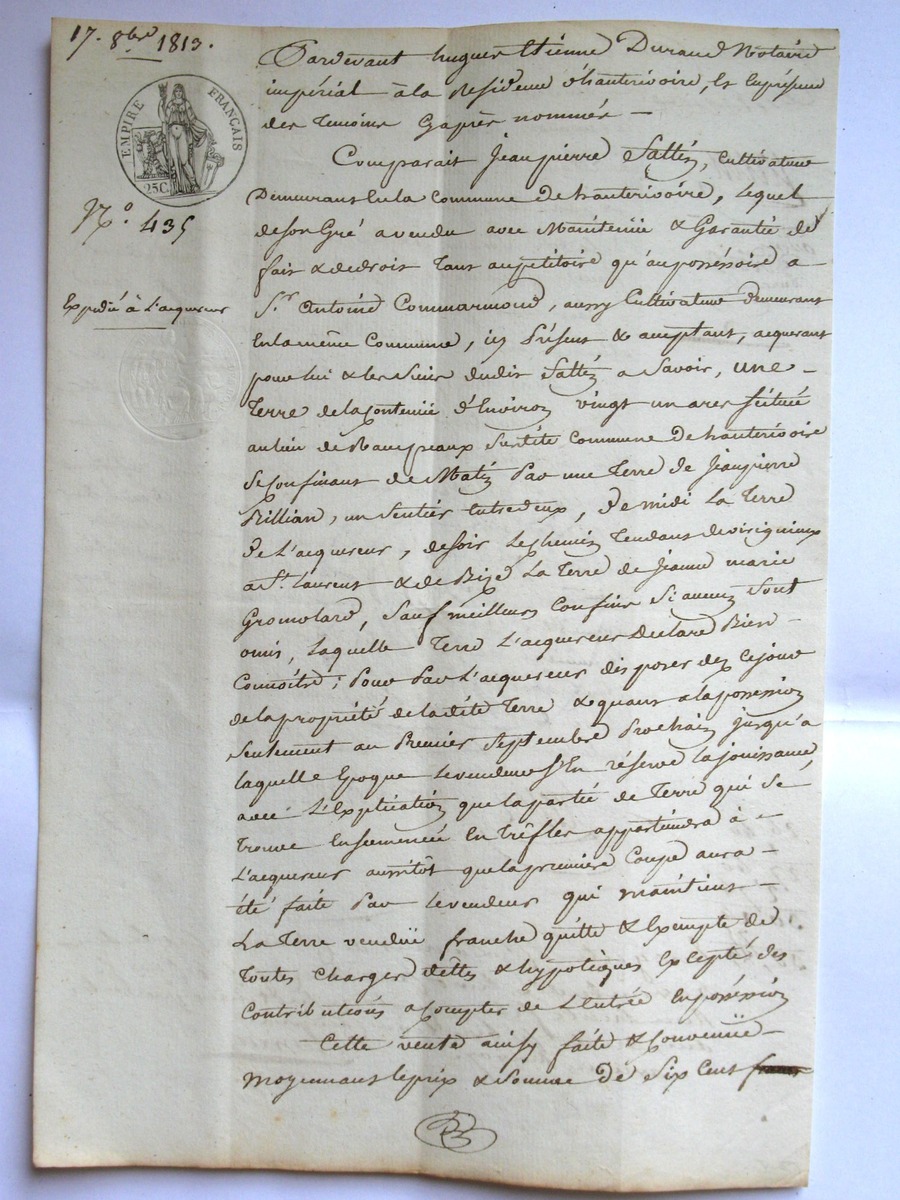 17. 8bre 1813.
EMPIRE FRANÇAIS
25C.
N.o 435
Expedié à L'acquereur
Pardevant hugues Etienne Durand Notaire
impérial à la Residence d'hauterivoire, & En présence
des Temoins Cy après nommés
Comparait Jeanpierre Sattin, Cultivateur
Demeurant En la Commune De hauterivoire, Lequel
de son Gré a vendu avec Maintenüe & Garantie de
fait & de droit Tant au petitoire qu'au posséssoire a
Sr. Antoine Commarmond, aussy Cultivateur demeurant
En la même Commune, icy Présent & acceptant, acquerant
pour lui & les Siens dudit Sattin a Savoir, une
Terre de la Contenüe d'Environ vingt un ares scituée
au lieu de susditte Commune De hauterivoire
Se Confinant de Matin Par une Terre de Jeanpierre
Rillian, un Sentier Entredeux, De midi La Terre
De L'acquereur, de Soir Le Chemin Tendant de viriginieux
a St. Laurent & de Bize La Terre de Jeanne marie
Gromolard, Sauf meilleurs Confins Si aucuns Sont
omis, Laquelle Terre L'acquereur Declare Bien
Connoitre; Pour Par L'acquereur disposer dez Cejour
de la propriété de ladite Terre & quant a la possession
Seulement au Premier Septembre Prochain jusqu'a
laquelle Epoque Le vendeur S'En réserve la jouissance,
avec L'Explication que la partie de Terre qui Se
Trouve Ensemencée En Trêfles appartiendra à
L'acquereur aussitôt que la première Coupe aura
été faite Par Le vendeur qui maintient
La Terre vendüe franche quitte & Exempte de
Toutes Charges dettes & hypotèques Excepté des
Contributions a Compter de L'Entrée En posséssion
Cette vente ainsy faite & Convenüe
Moyennant le prix & Somme De Six Cent francs